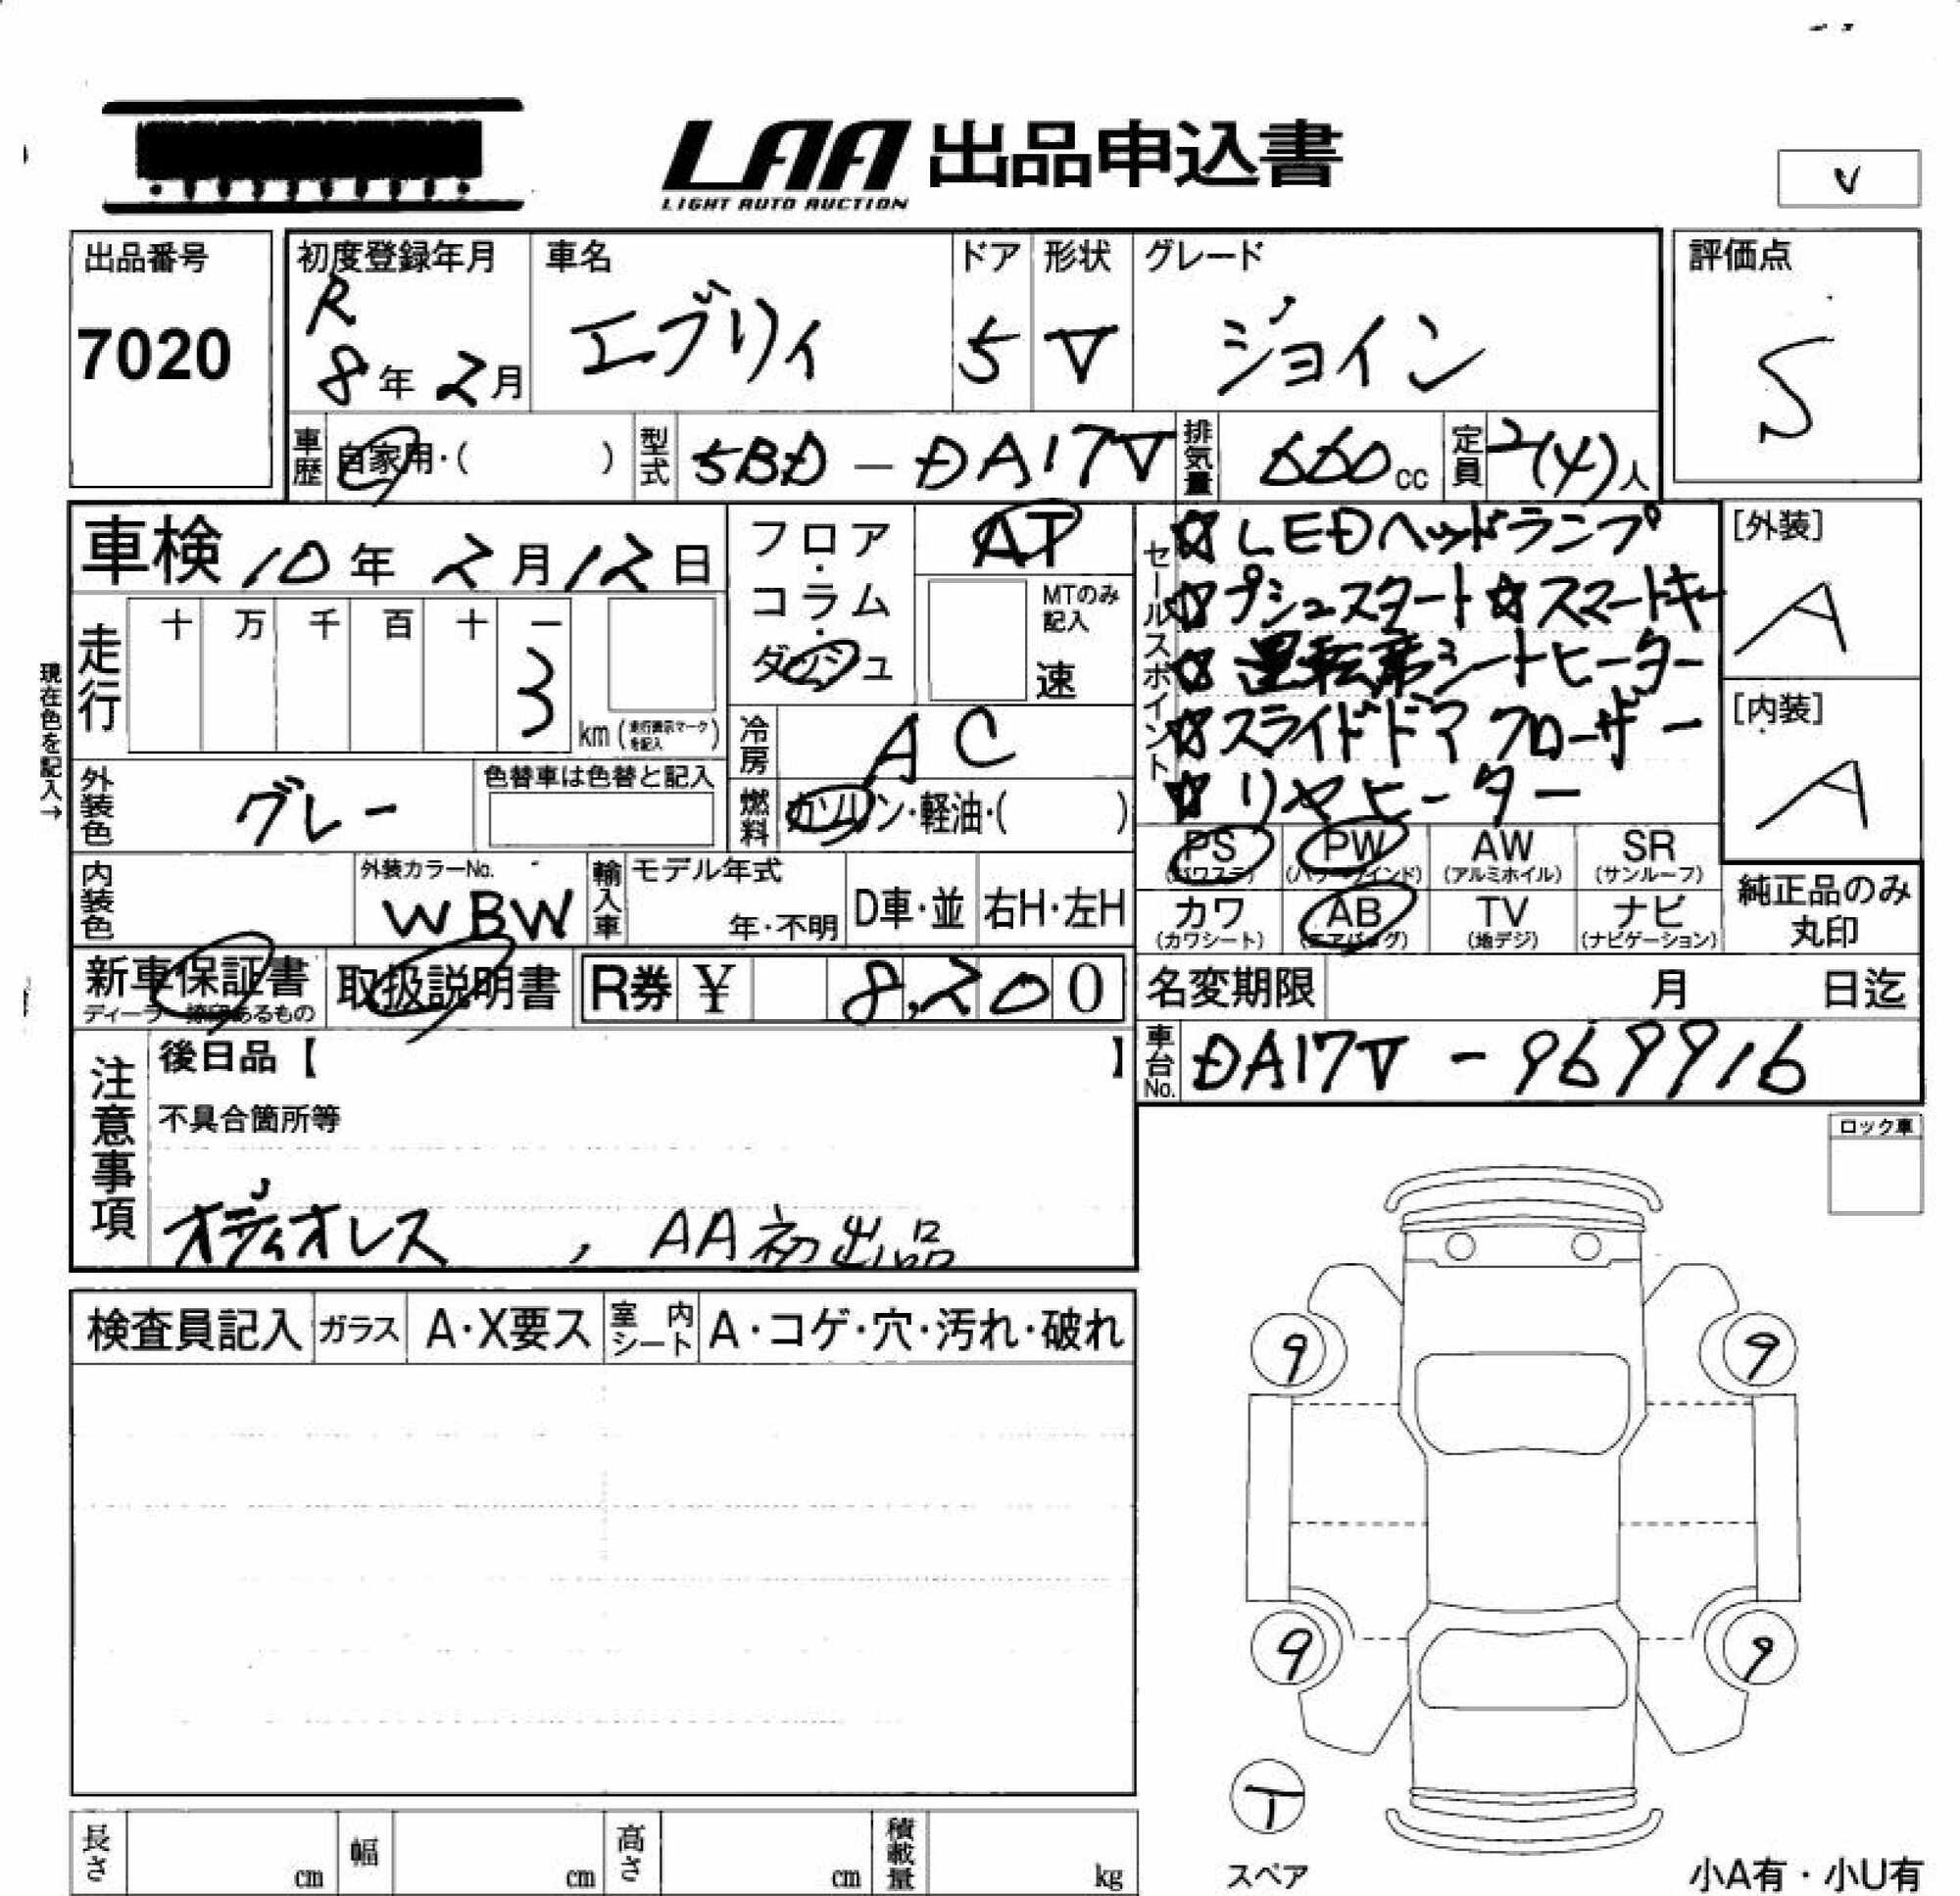 LAA 出品申込書
LIGHT AUTO AUCTION
V
出品番号
7020
初度登録年月
R
8年2月
車名
エブリィ
ドア
5
形状
V
グレード
ジョイン
評価点
S
車歴
自家用・( )
型式
5BD-DA17V
排気量
660cc
定員
2(4)人
車検 10年2月12日
フロア・コラム・ダッシュ
AT
MTのみ記入
速
セールスポイント
☆LEDヘッドランプ
☆プシュスタート☆スマートキー
☆運転席シートヒーター
☆スライドドアクローザー
☆リヤヒーター
[外装]
A
[内装]
A
現在色を記入→
走行
十 万 千 百 十 一
3
km(走行表示マークを記入)
冷房
AC
外装色
グレー
色替車は色替と記入
燃料
ガソリン・軽油・( )
PS
(パワステ)
PW
(パワーウインド)
AW
(アルミホイル)
SR
(サンルーフ)
カワ
(カワシート)
AB
(エアバッグ)
TV
(地デジ)
ナビ
(ナビゲーション)
純正品のみ
丸印
内装色
外装カラーNo.
WBW
輸入車
モデル年式
年・不明
D車・並
右H・左H
新車保証書
取扱説明書
R券 ¥ 8,200
名変期限 月 日迄
車台No.
DA17V-969916
注意事項
後日品【 】
不具合箇所等
オーディオレス , AA初出品
ロック車
検査員記入
ガラス
A・X要ス
室内シート
A・コゲ・穴・汚れ・破れ
9
9
9
9
T
スペア
小A有・小U有
長さ cm
幅 cm
高さ cm
積載量 kg